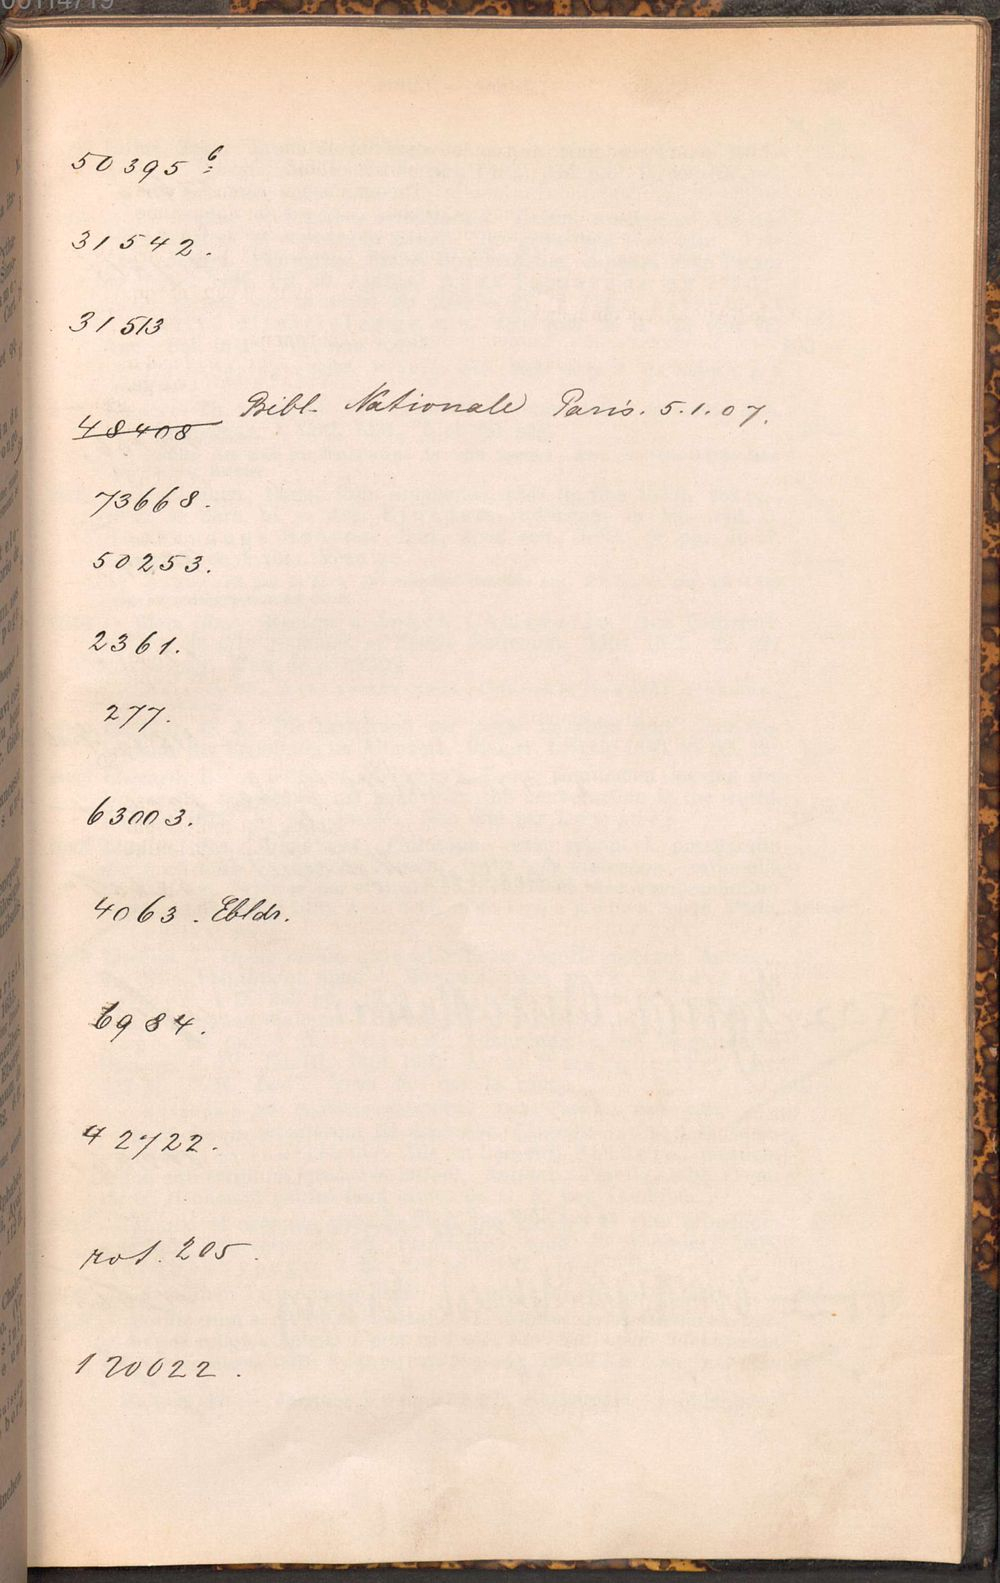 00114719
50395 6
31542.
31513
48408 Bibl. Nationale Paris. 5.1.07.
73668.
50253.
2361.
277.
63003.
4063. Ebldr.
6984.
42722.
rot. 205.
120022.